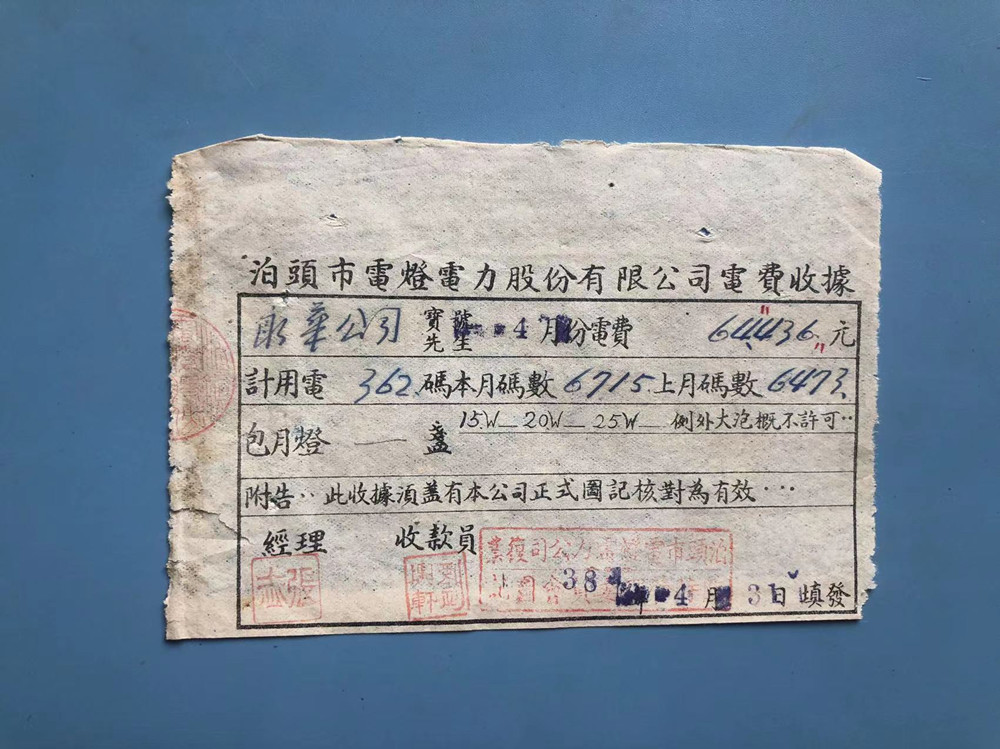 泊頭市電燈電力股份有限公司電費收據
華公司 寶號先生 4月份電費 64,436元
計用電 362 碼本月碼數 6715 上月碼數 6473
包月燈 一 盞 15W 20W 25W 例外大泡概不許可··
附告··此收據須盖有本公司正式圖記核對為有效···
經理 收款員
泊頭市電燈電力公司復業
張
劉
軒
38 年 4 月 3日填發